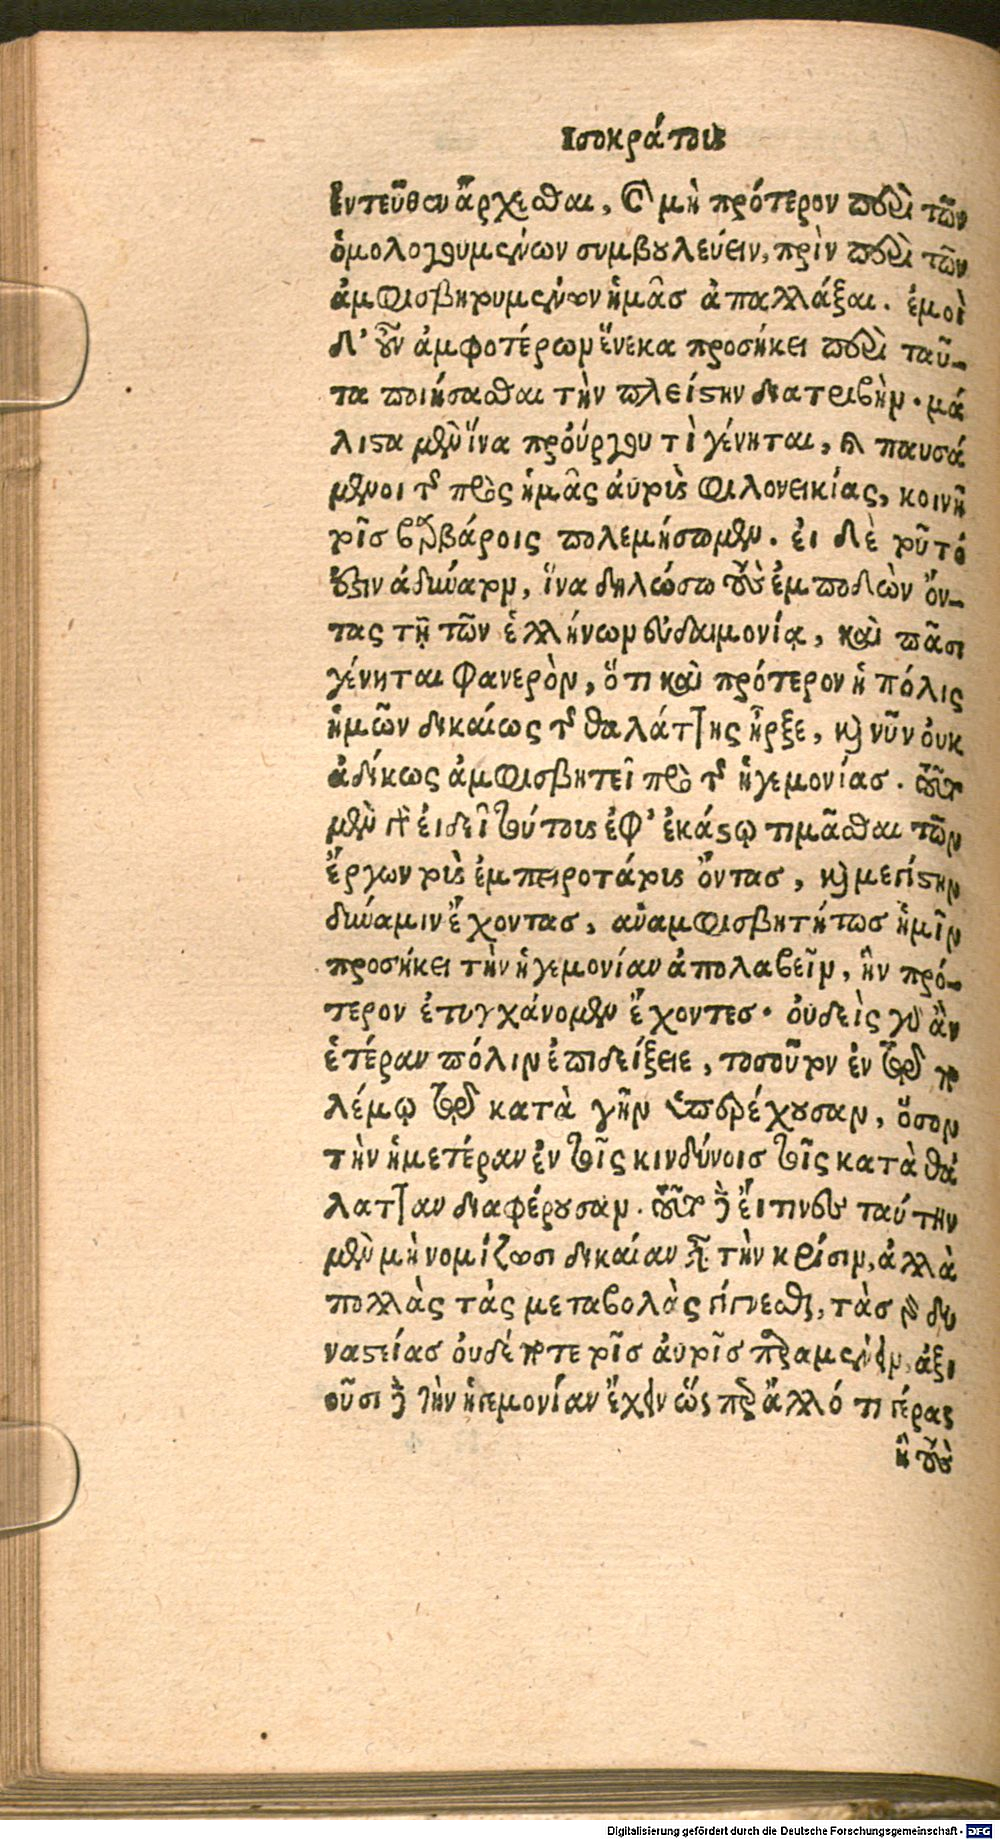 Ισοκράτους
Ἐντεῦθεν ἄρχεσθαι, καὶ μὴ πρότερον περὶ τῶν
ὁμολογουμένων συμβουλεύειν, πρὶν περὶ τῶν
ἀμφισβητουμένων ἡμᾶς ἀπαλλάξαι. ἐμοὶ
δ' οὖν ἀμφοτέρων ἕνεκα προσήκει περὶ ταῦ-
τα ποιήσασθαι τὴν πλείστην διατριβὴν. μά
λιστα μὲν ἵνα προὔργου τὶ γένηται, καὶ παυσά
μενοι τῆς πρὸς ἡμᾶς ἀυτοὺς φιλονεικίας, κοινῇ
τοῖς βαρβάροις πολεμήσωμεν. ἐι δὲ τοῦτό
ἐστιν ἀδύνατον, ἵνα δηλώσω τοὺς ἐμποδὼν ὄν-
τας τῇ τῶν ἑλλήνων εὐδαιμονίᾳ, καὶ πᾶσι
γένηται φανερὸν, ὅτι καὶ πρότερον ἡ πόλις
ἡμῶν δικαίως τῆς θαλάττης ἦρξε, καὶ νῦν ὀυκ
ἀδίκως ἀμφισβητεῖ περὶ τῆς ἡγεμονίας. τοῦτο
μὲν γὰρ ἐι δεῖ τούτους ἐφ' ἑκάστῳ τιμᾶσθαι τῶν
ἔργων τοὺς ἐμπειροτάτους ὄντας, καὶ μεγίστην
δύναμιν ἔχοντας, ἀναμφισβητήτως ἡμῖν
προσήκει τὴν ἡγεμονίαν ἀπολαβεῖν, ἣν πρό-
τερον ἐτυγχάνομεν ἔχοντες. ὀυδεὶς γὰρ ἂν
ἑτέραν πόλιν ἐπιδείξειε, τοσοῦτον ἐν τῷ πο
λέμῳ τῷ κατὰ γῆν ὑπερέχουσαν, ὅσον
τὴν ἡμετέραν ἐν τοῖς κινδύνοις τοῖς κατὰ θά
λατταν διαφέρουσαν. τοῦτο δὲ ἔι τινες ταύτην
μὲν μὴ νομίζωσι δικαίαν εἶναι τὴν κρίσιν, ἀλλὰ
πολλὰς τὰς μεταβολὰς γίγνεσθαι, τὰς γὰρ δυ
ναστείας ὀυδέποτε τοῖς ἀυτοῖς παραμένειν, ἀξι
οῦσι δὲ τὴν ἡγεμονίαν ἔχειν ὥσπερ ἄλλό τι γέρας
ἢ τοὺς
Digitalisierung gefördert durch die Deutsche Forschungsgemeinschaft - DFG